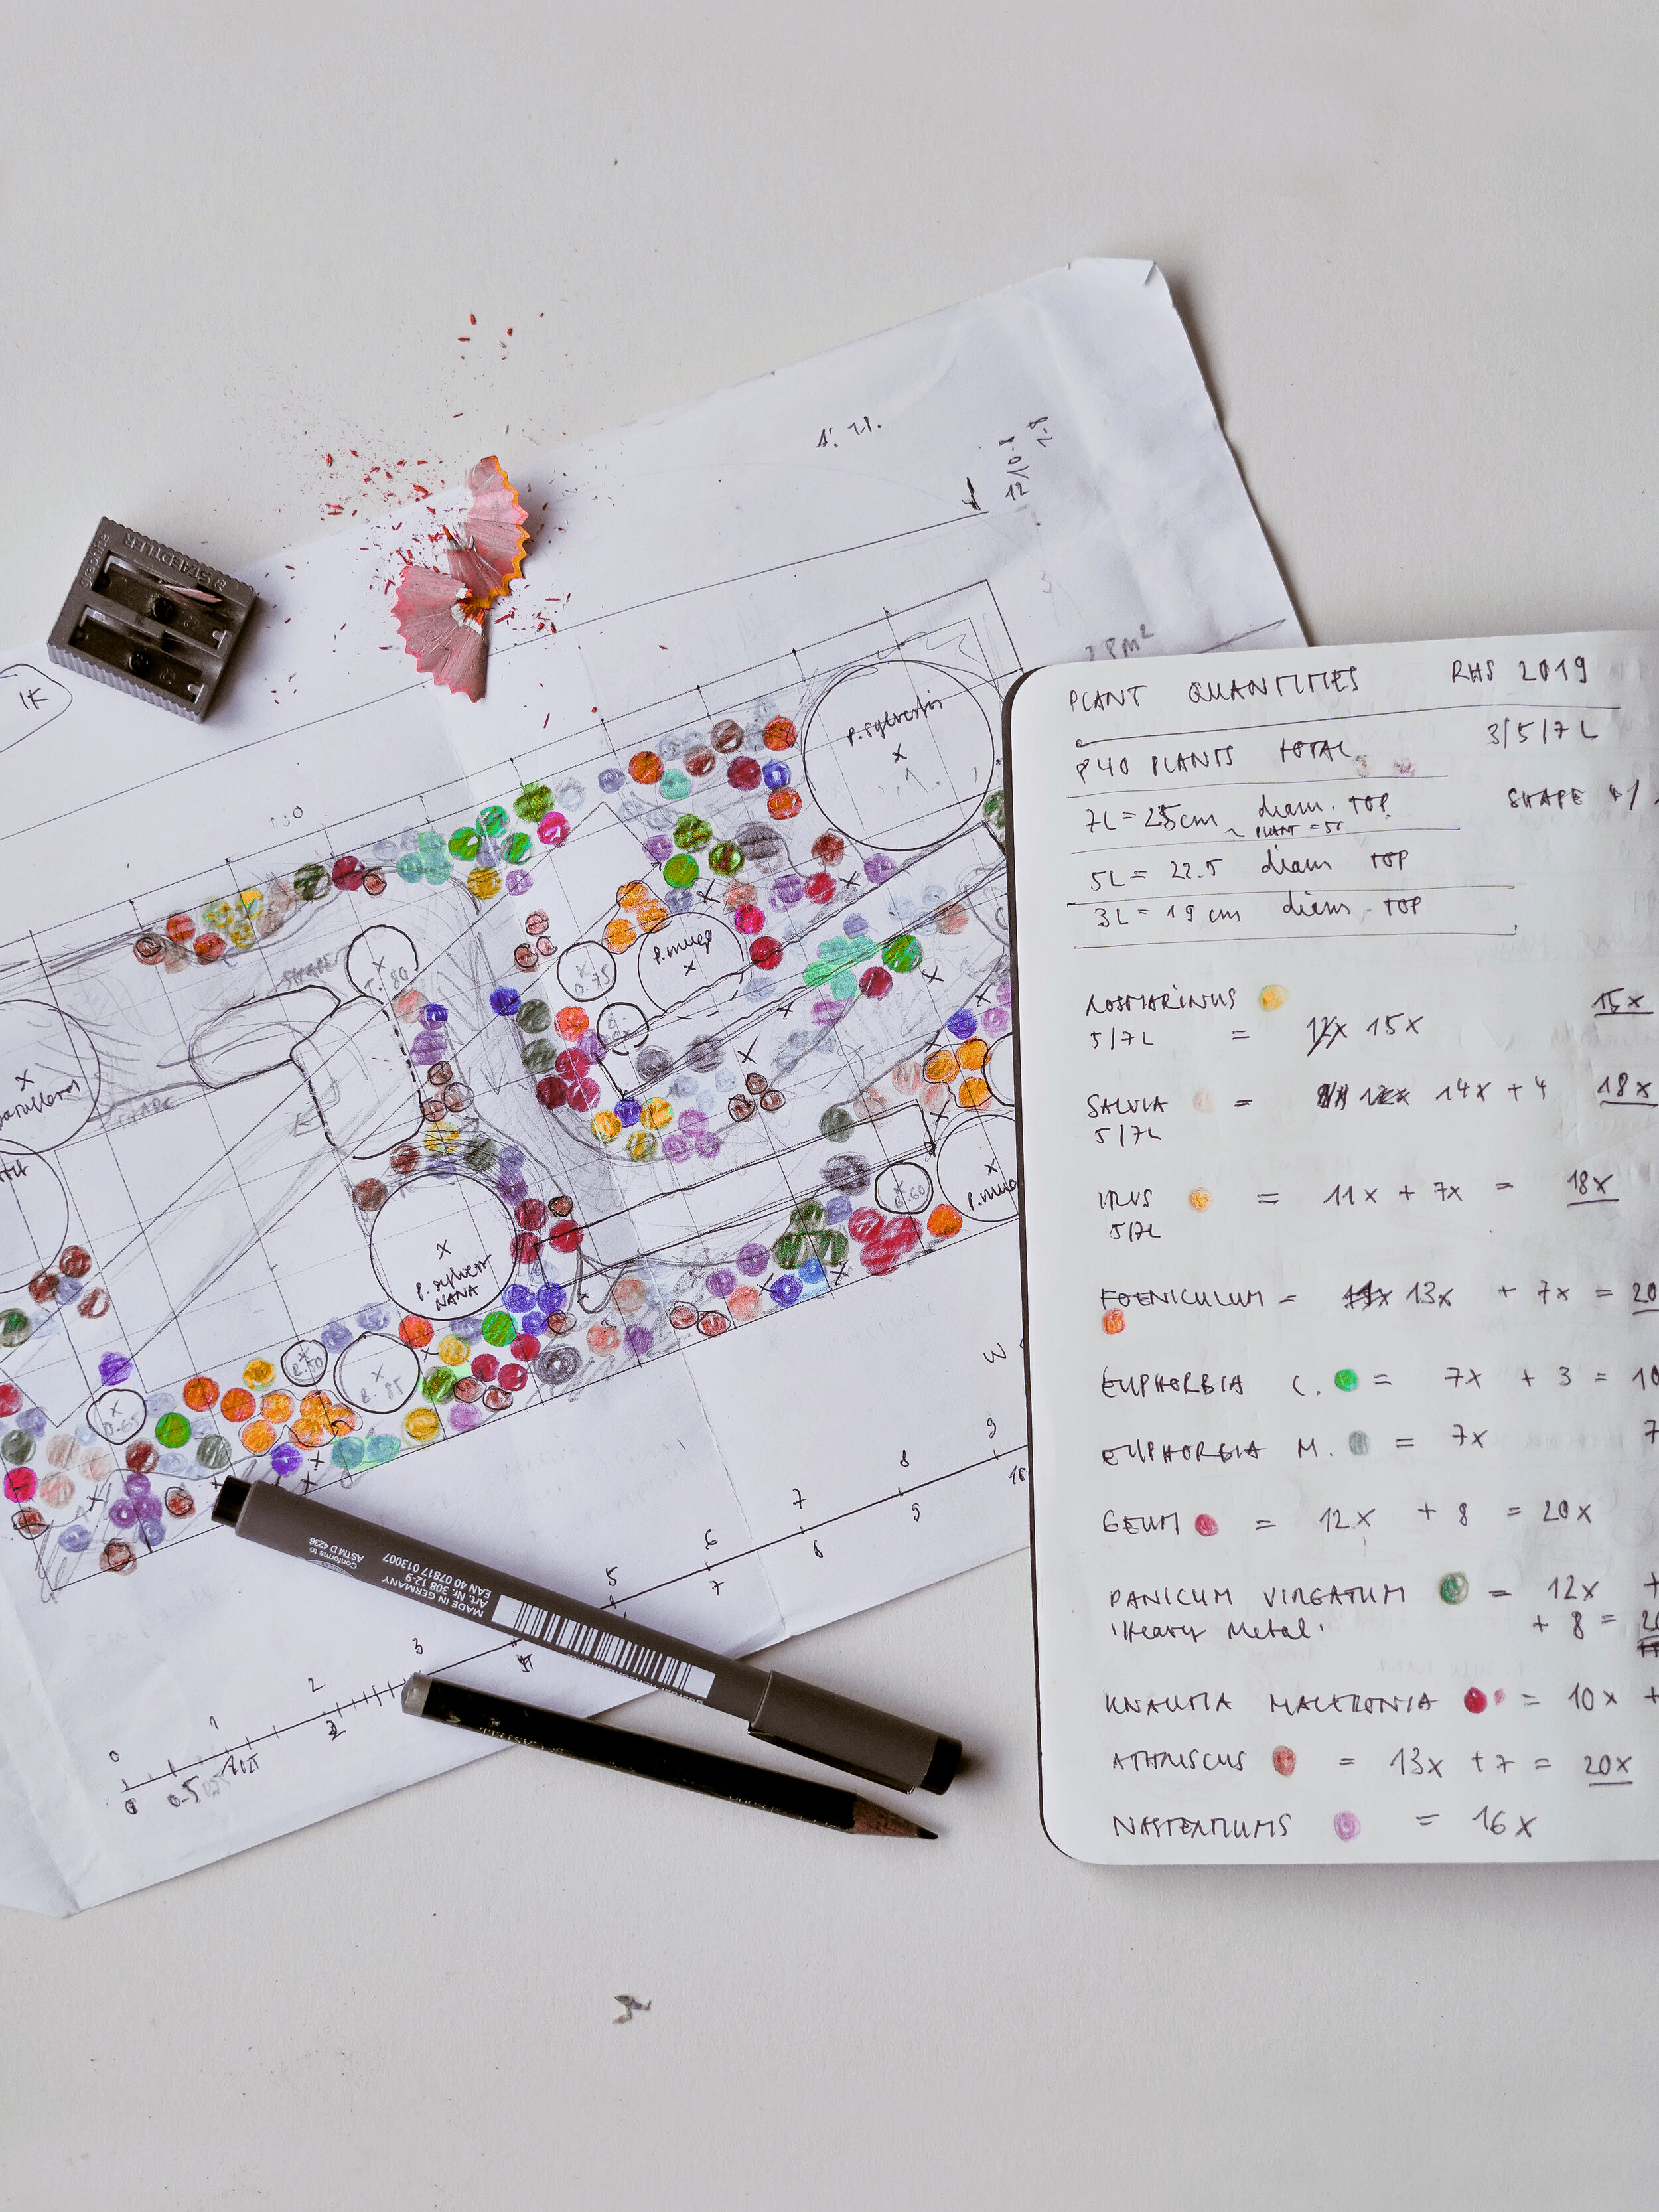 PLANT QUANTITIES RHS 2019
840 PLANTS TOTAL 3/5/7L
7L = 25cm diam. TOP SHAPE
~ PLANT = 5L
5L = 22.5 diam TOP
3L = 19 cm diam. TOP
ROSMARINUS 15x
5/7L = 12x 15x
SALVIA = 12x 14x + 4 18x
5/7L
IRIS = 11x + 7x = 18x
5/7L
FOENICULUM = 11x 13x + 7x = 20
EUPHORBIA C. = 7x + 3 = 10
EUPHORBIA M. = 7x 7
GEUM = 12x + 8 = 20x
PANICUM VIRGATUM = 12x +
'Heavy Metal' + 8 = 20
KNAUTIA MACEDONIA = 10x +
ATHRISCUS = 13x + 7 = 20x
NASTERTIUMS = 16x
1K
STAEDTLER
12/10.8
28m²
P. sylvestris
P. mugo
0.75
T. 80
SHAPE
SHAPE
P. sylvest
NANA
P. mugo
B. 60
B. 50
B. 85
B. 65
0 1 2 3 5 6 7 8 9
0 0.5 2 7 8 9 10
MADE IN GERMANY
Art. Nr. 308 12-9
EAN 40 07817 013007
Conforms to
ASTM D 4236